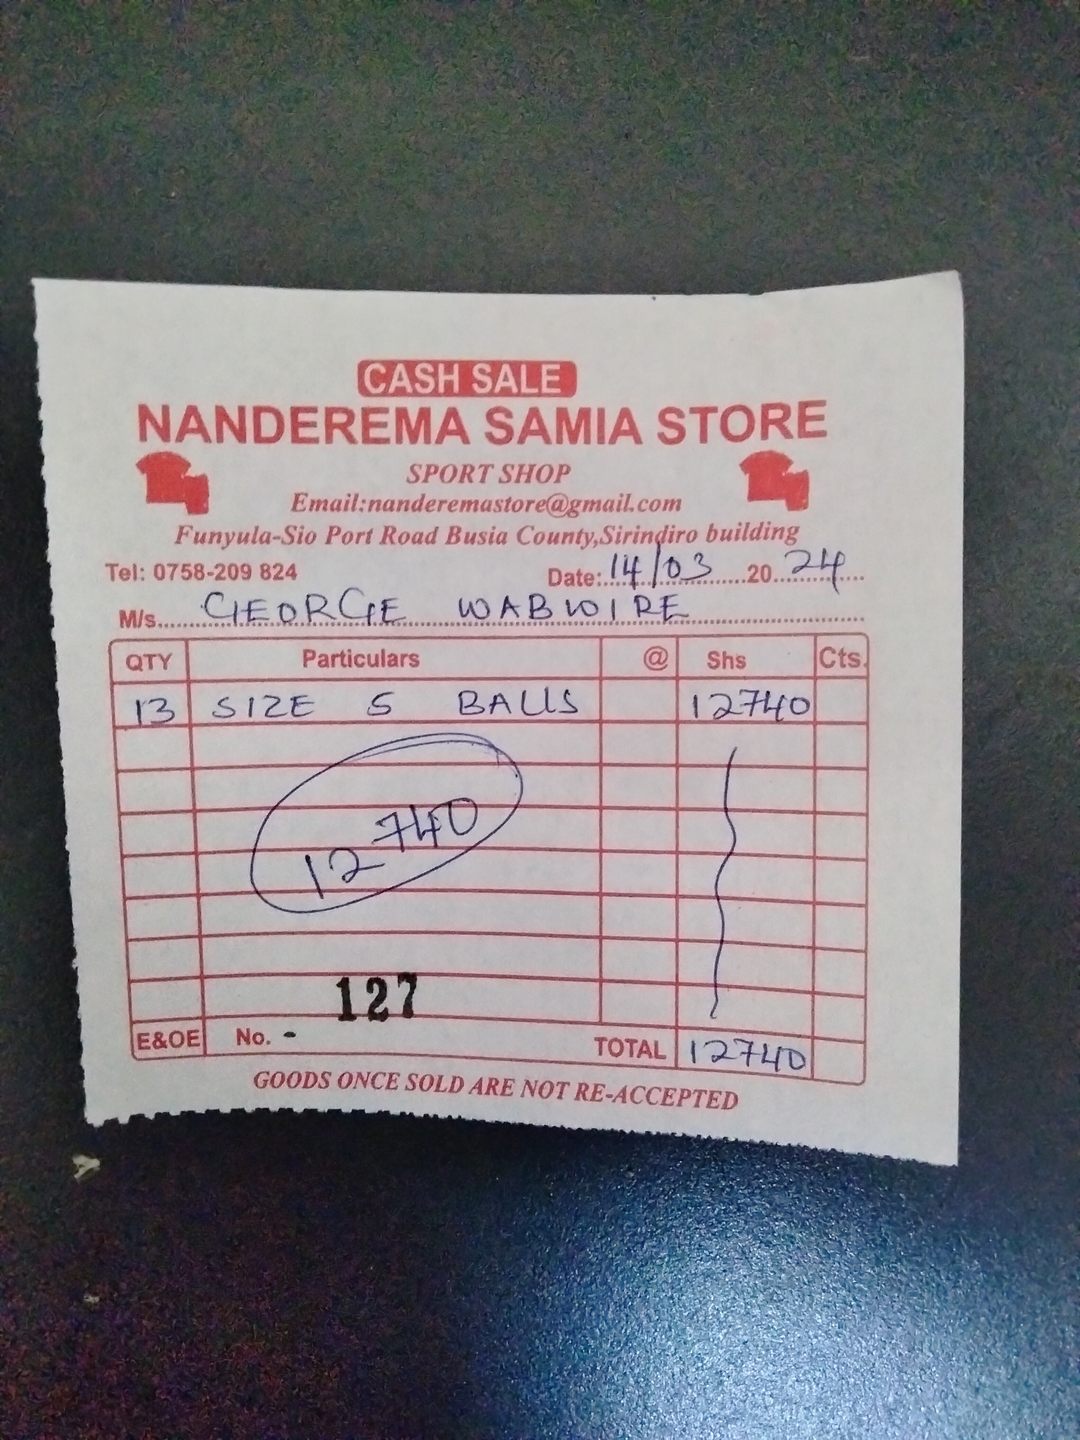 CASH SALE
NANDEREMA SAMIA STORE
SPORT SHOP
Email:nanderemastore@gmail.com
Funyula-Sio Port Road Busia County,Sirindiro building
Tel: 0758-209 824 Date: 14/03 20 24
M/s. GEORGE WABWIRE
QTY Particulars @ Shs Cts.
13 SIZE 5 BALLS 12740
12740
127
E&OE No. - TOTAL 12740
GOODS ONCE SOLD ARE NOT RE-ACCEPTED